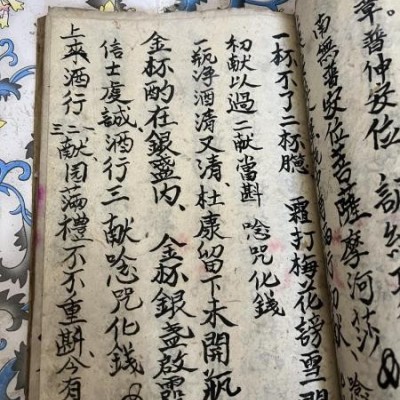 章。普伸安位
南無普安位菩薩摩河莎
一杯不了二杯臨　霜打梅花謗雪一開
初献以過二献當斟　唸咒化錢
一瓶淨酒清又清、杜康留下未開瓶
金杯酌在銀盞内、金杯銀盞啟
信士虔誠酒行三献唸咒化錢
上來酒行二三献圆滿禮不不重斟、今有